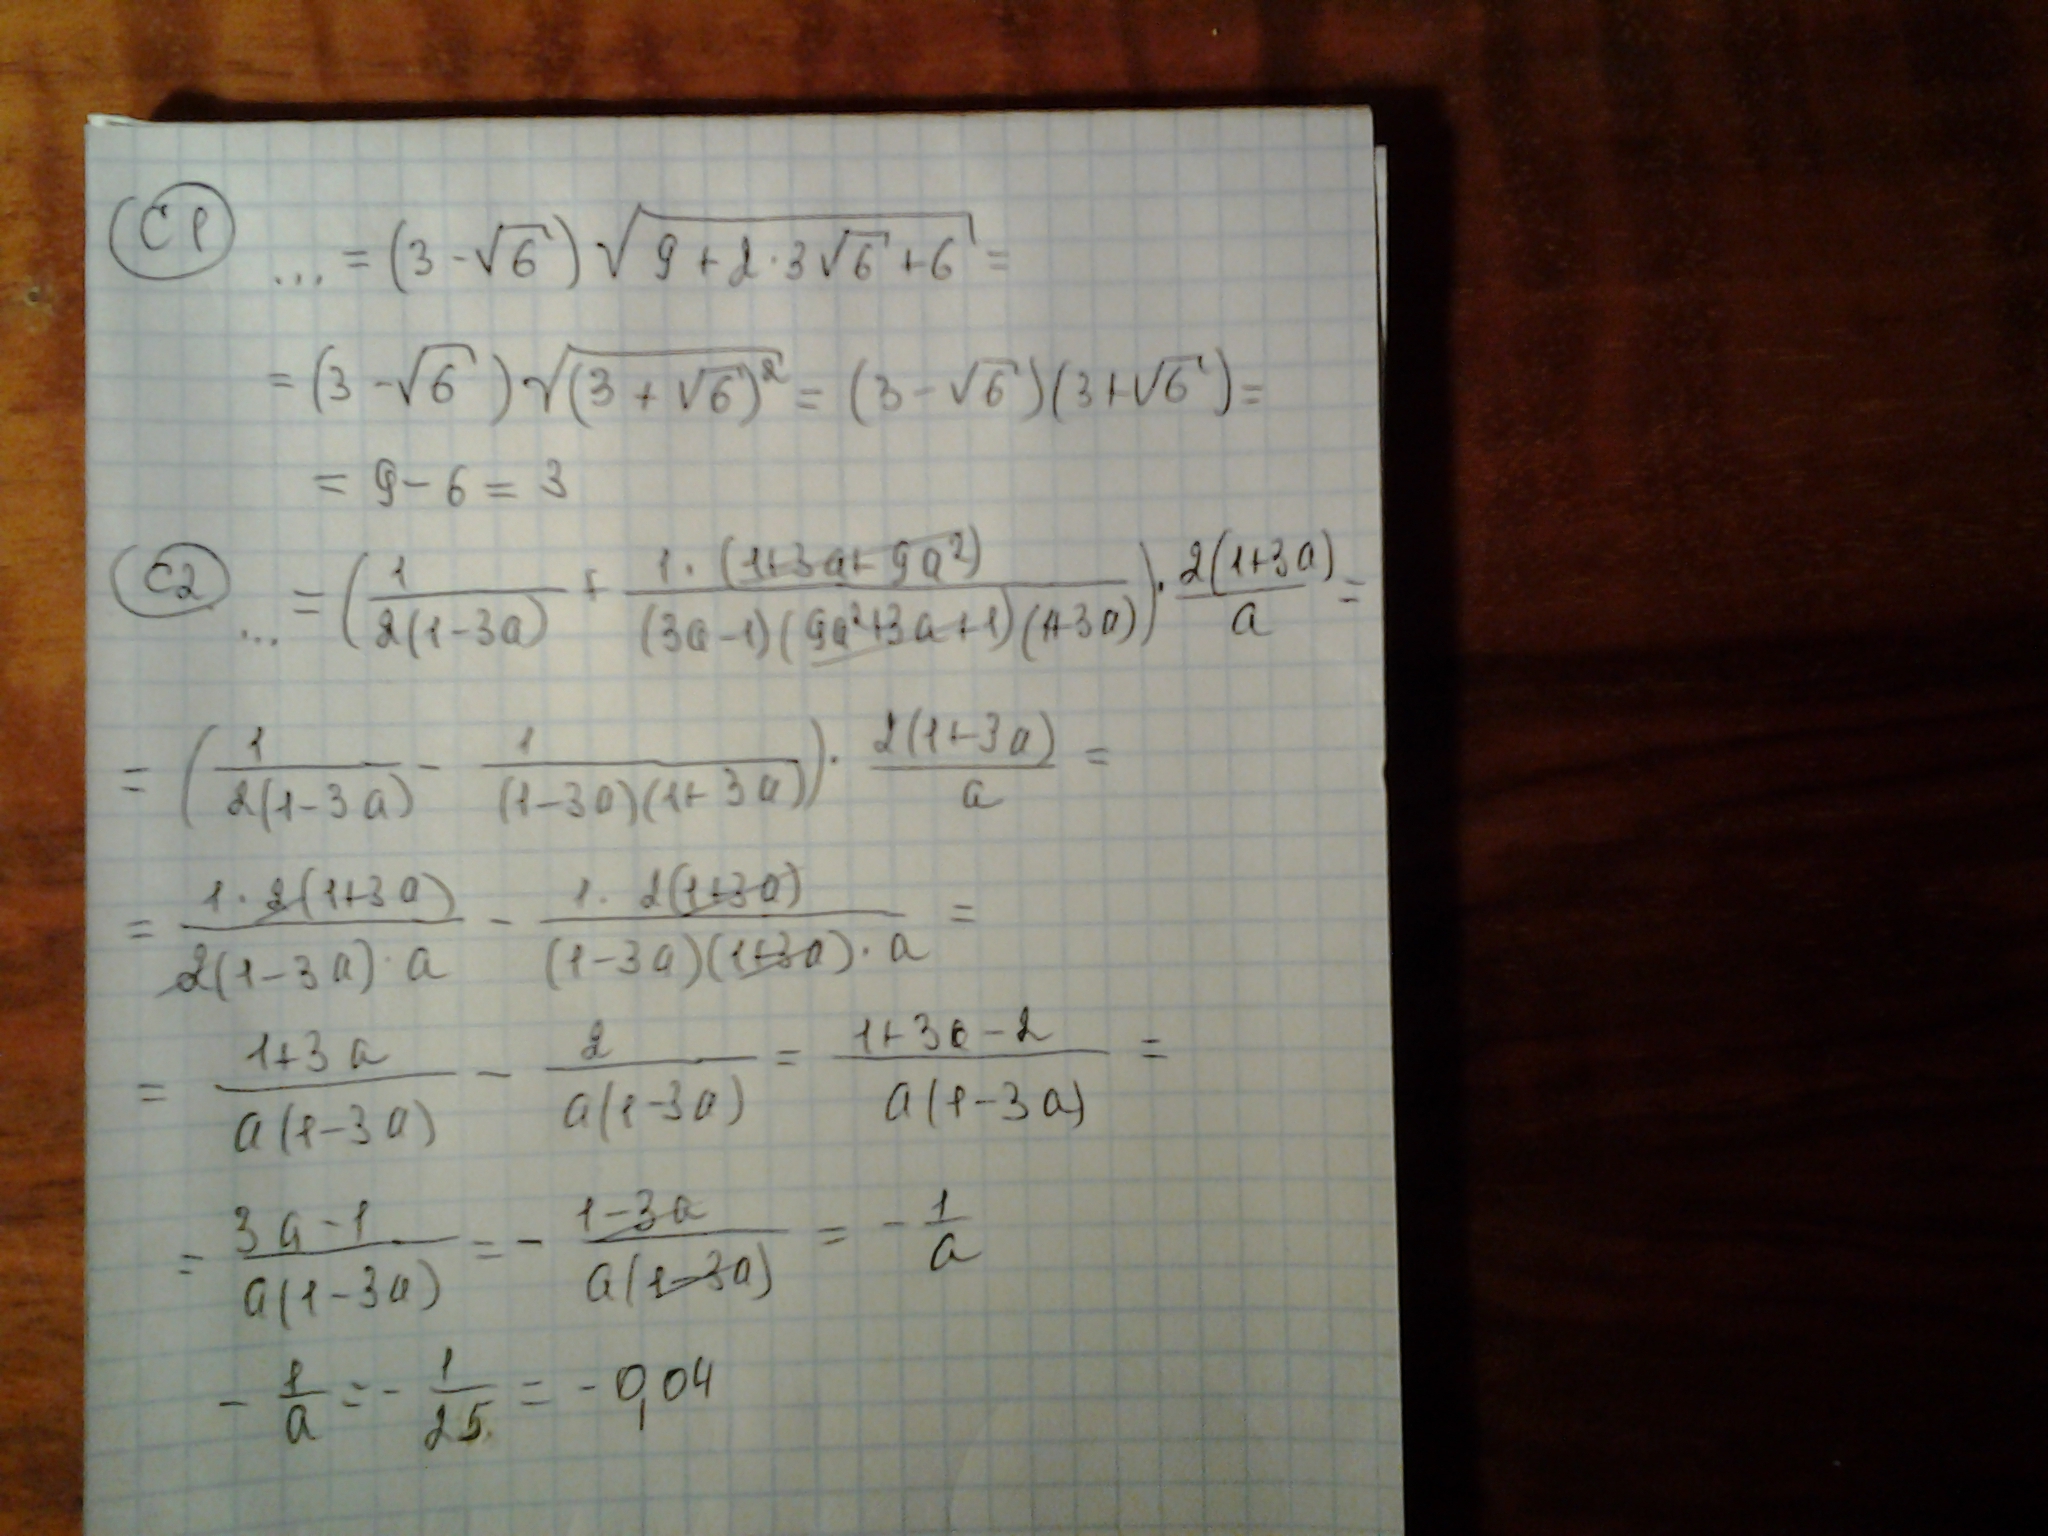 С1
... = (3 - √6) √(9 + 2·3√6 + 6) =
= (3 - √6) √((3 + √6)²) = (3 - √6)(3 + √6) =
= 9 - 6 = 3
С2
... = (1/(2(1-3a)) + (1·(1+3a+9a²))/((3a-1)(9a²+3a+1)(1+3a))) · (2(1+3a))/a =
= (1/(2(1-3a)) - 1/((1-3a)(1+3a))) · (2(1+3a))/a =
= (1·2(1+3a))/(2(1-3a)·a) - (1·2(1+3a))/((1-3a)(1+3a)·a) =
= (1+3a)/(a(1-3a)) - 2/(a(1-3a)) = (1+3a-2)/(a(1-3a)) =
= (3a-1)/(a(1-3a)) = - (1-3a)/(a(1-3a)) = - 1/a
- 1/a = - 1/25 = - 0,04